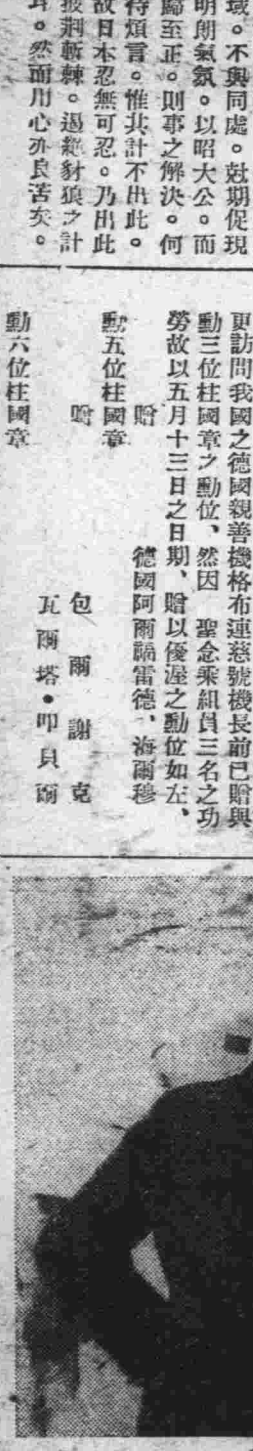 域。不與同處。尅期促現
明朗氣氛。以昭大公。而
歸至正。則事之解決。何
待煩言。惟其計不出此。
故日本忍無可忍。乃出此
披荆斬棘。遏絕豺狼之計
耳。然而用心亦良苦矣。
更訪問我國之德國親善機格布連慈號機長前已贈與
勳三位柱國章之勳位、然因　聖念乘組員三名之功
勞故以五月十三日之日期、贈以優渥之勳位如左、
贈　德國阿爾謅雷德、海爾穆
勳五位柱國章
贈　包爾謝克
瓦爾塔・叩貝爾
勳六位柱國章